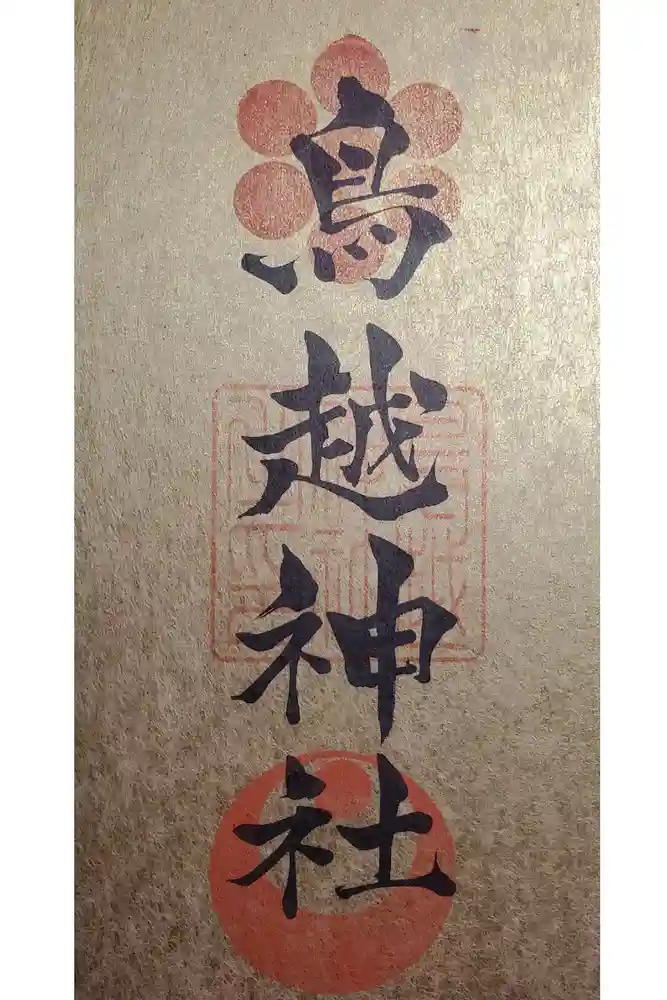 鳥越神社